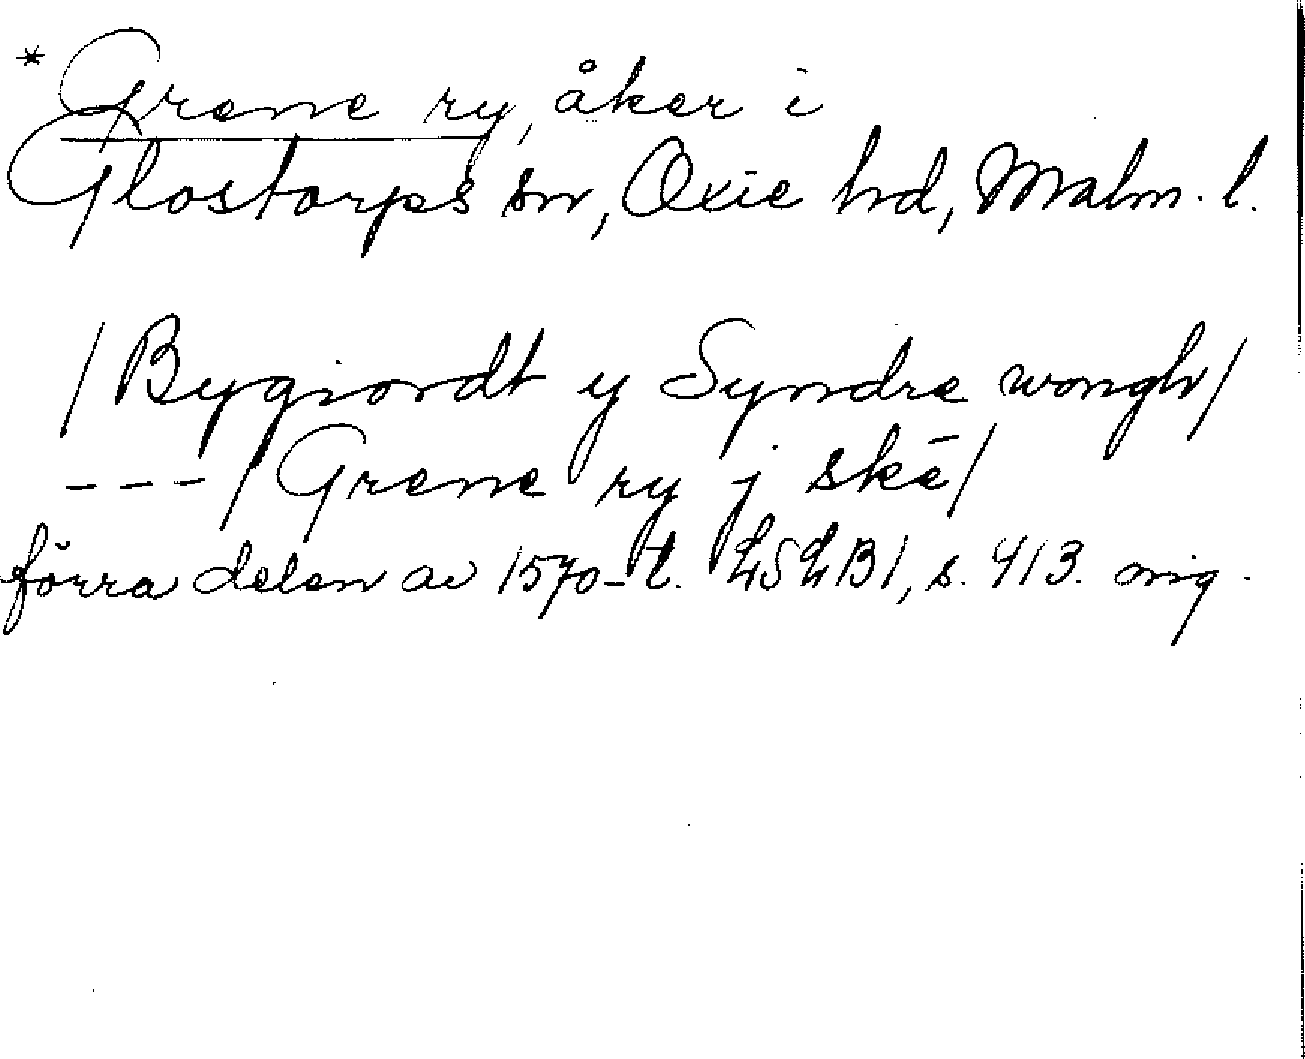 * Grene ry, åker i
Glostorps sn, Oxie hd, Malm. l.
/Bygiordt y Syndre wongh/
---/Grene ry j skē/
förra delen av 1570-t. LSLB1, s. 413. orig.